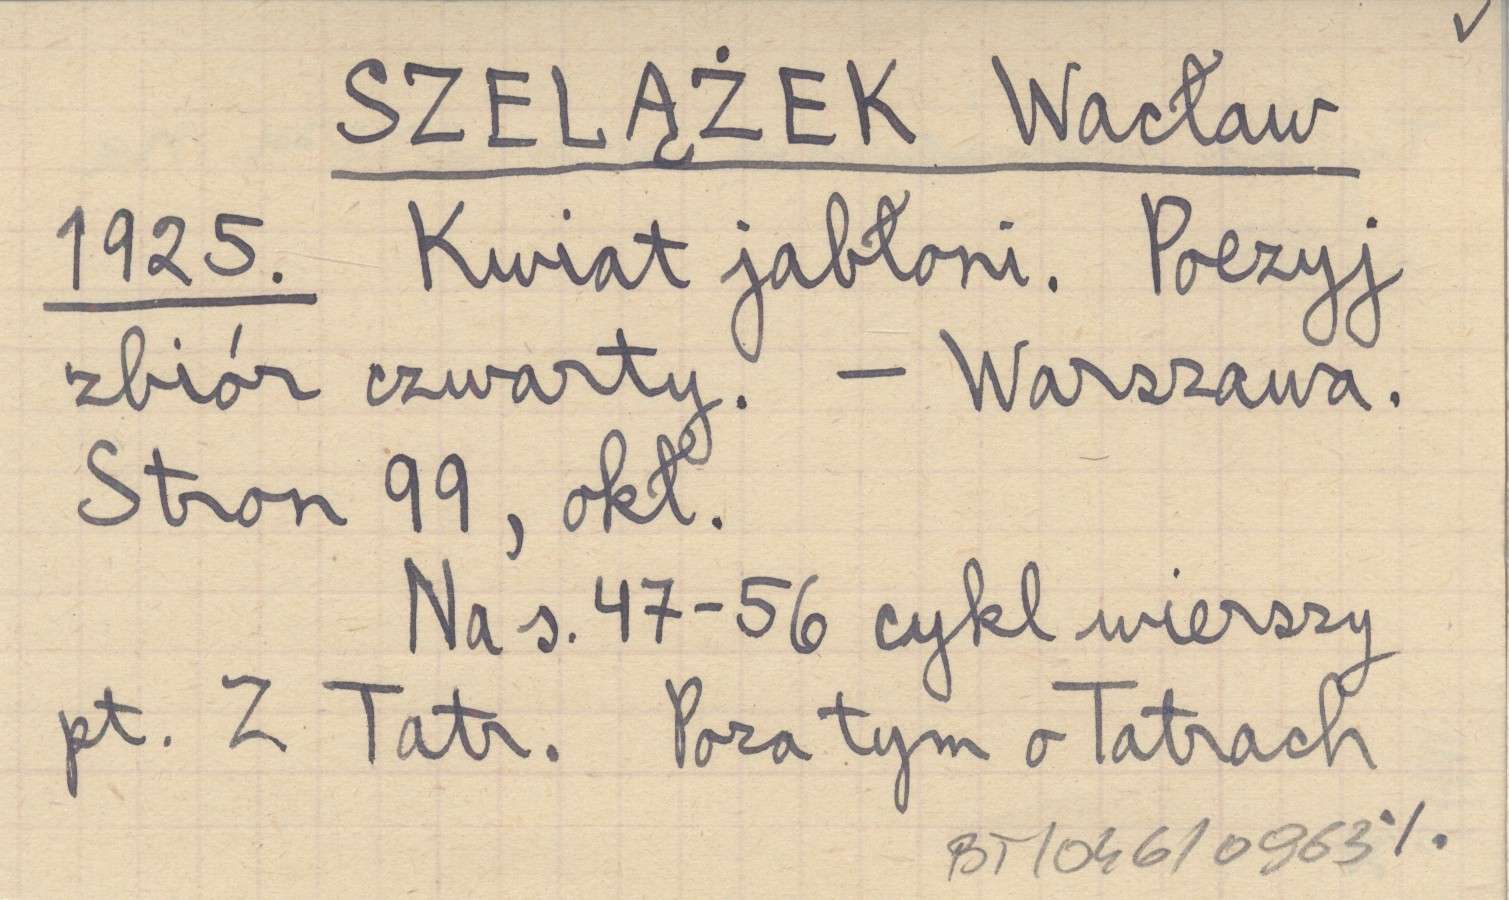 SZELĄŻEK Wacław
1925. Kwiat jabłoni. Poezyj
zbiór czwarty. — Warszawa.
Stron 99, okł.
Na s. 47-56 cykl wierszy
pt. Z Tatr. Poza tym o Tatrach
BT/046/0963 ·/.